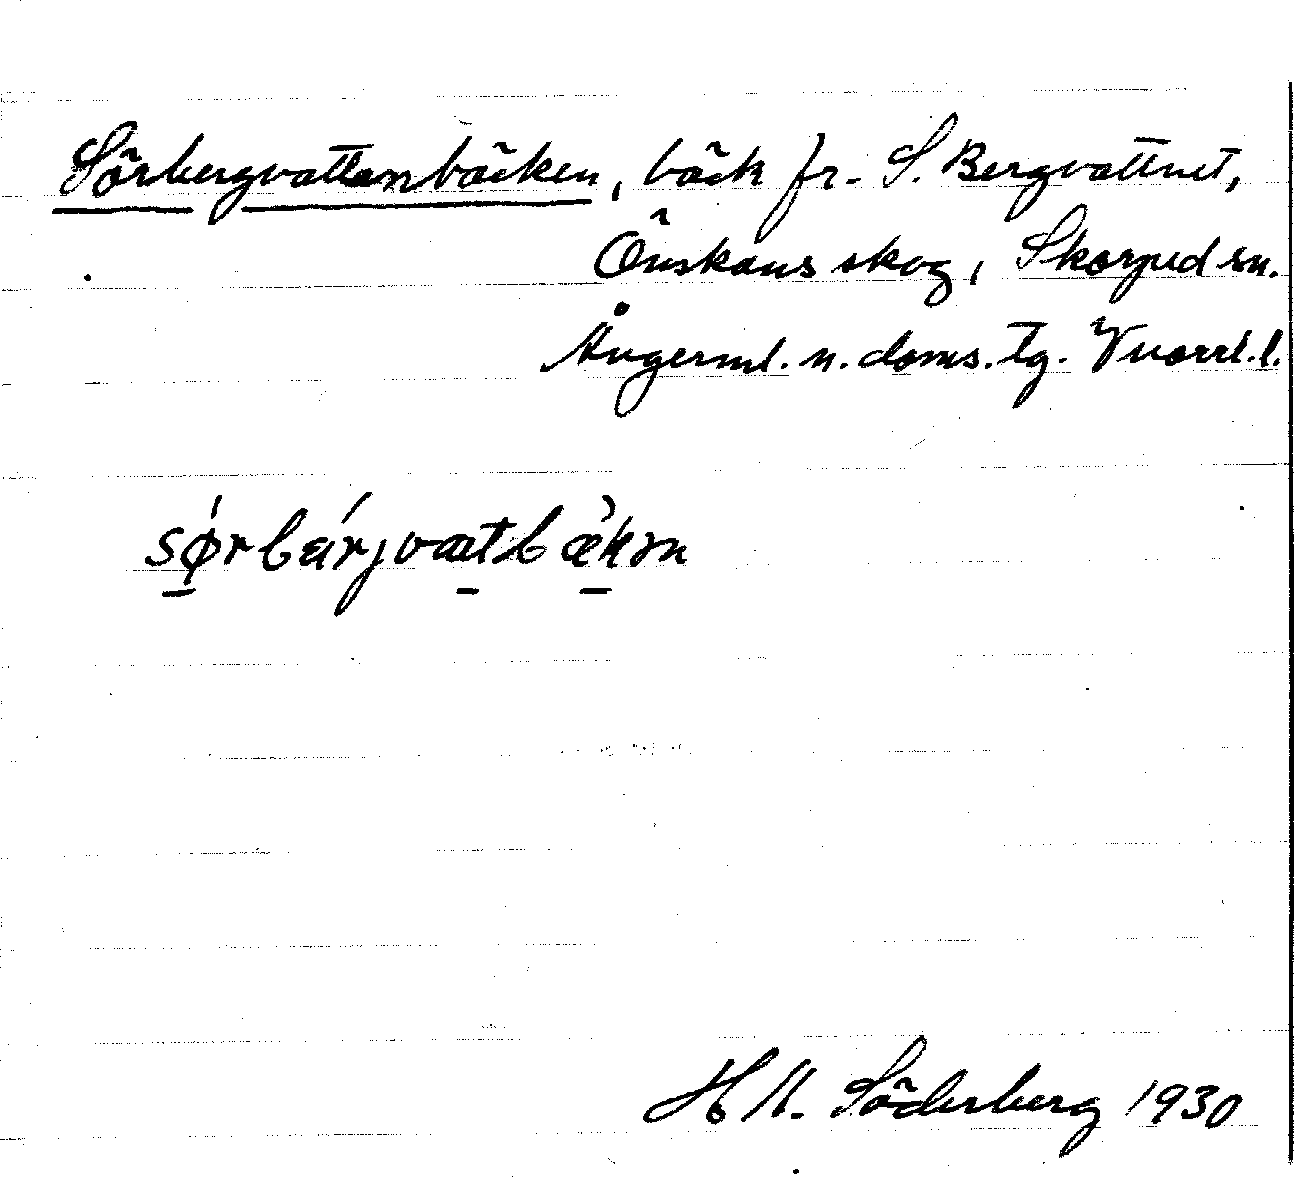 Sörbergvattenbäcken, bäck fr. S. Bergvattnet,
Önskans skog, Skorped sn.
Ångerml. n. doms. tg. Vnorrl. l.
sørbärjvætbækın
H. Söderberg 1930